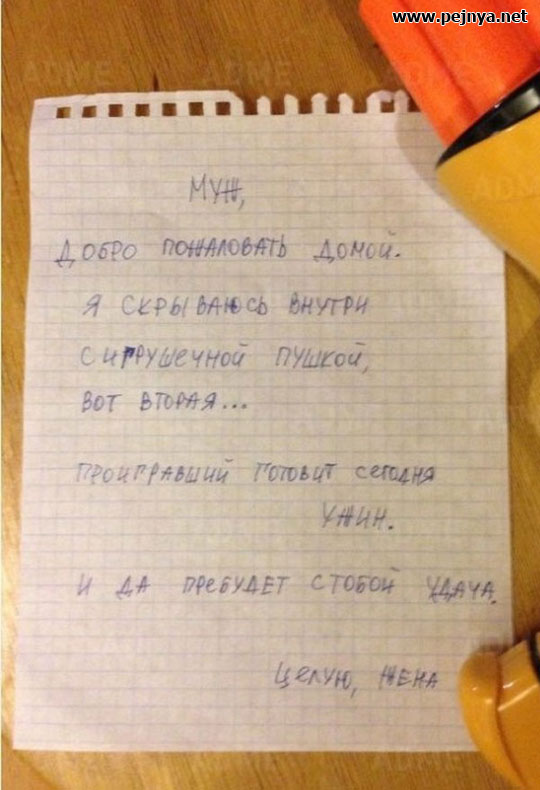 www.pejnya.net
ADME
МУЖ,
ДОБРО ПОЖАЛОВАТЬ ДОМОЙ.
Я СКРЫВАЮСЬ ВНУТРИ
С ИГРУШЕЧНОЙ ПУШКОЙ,
ВОТ ВТОРАЯ...
ПРОИГРАВШИЙ ГОТОВИТ СЕГОДНЯ
УЖИН.
И ДА ПРЕБУДЕТ С ТОБОЙ УДАЧА.
ЦЕЛУЮ, ЖЕНА